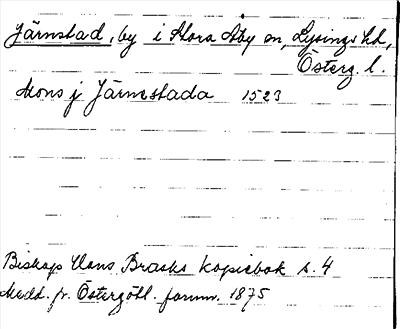 Järnstad, by i Stora Åby sn, Lysings hd,
Österg. l.
Mons j Järmstada 1523
Biskop Hans Brasks kopiebok s. 4
Medd. fr. Östergötl. fornm. 1875